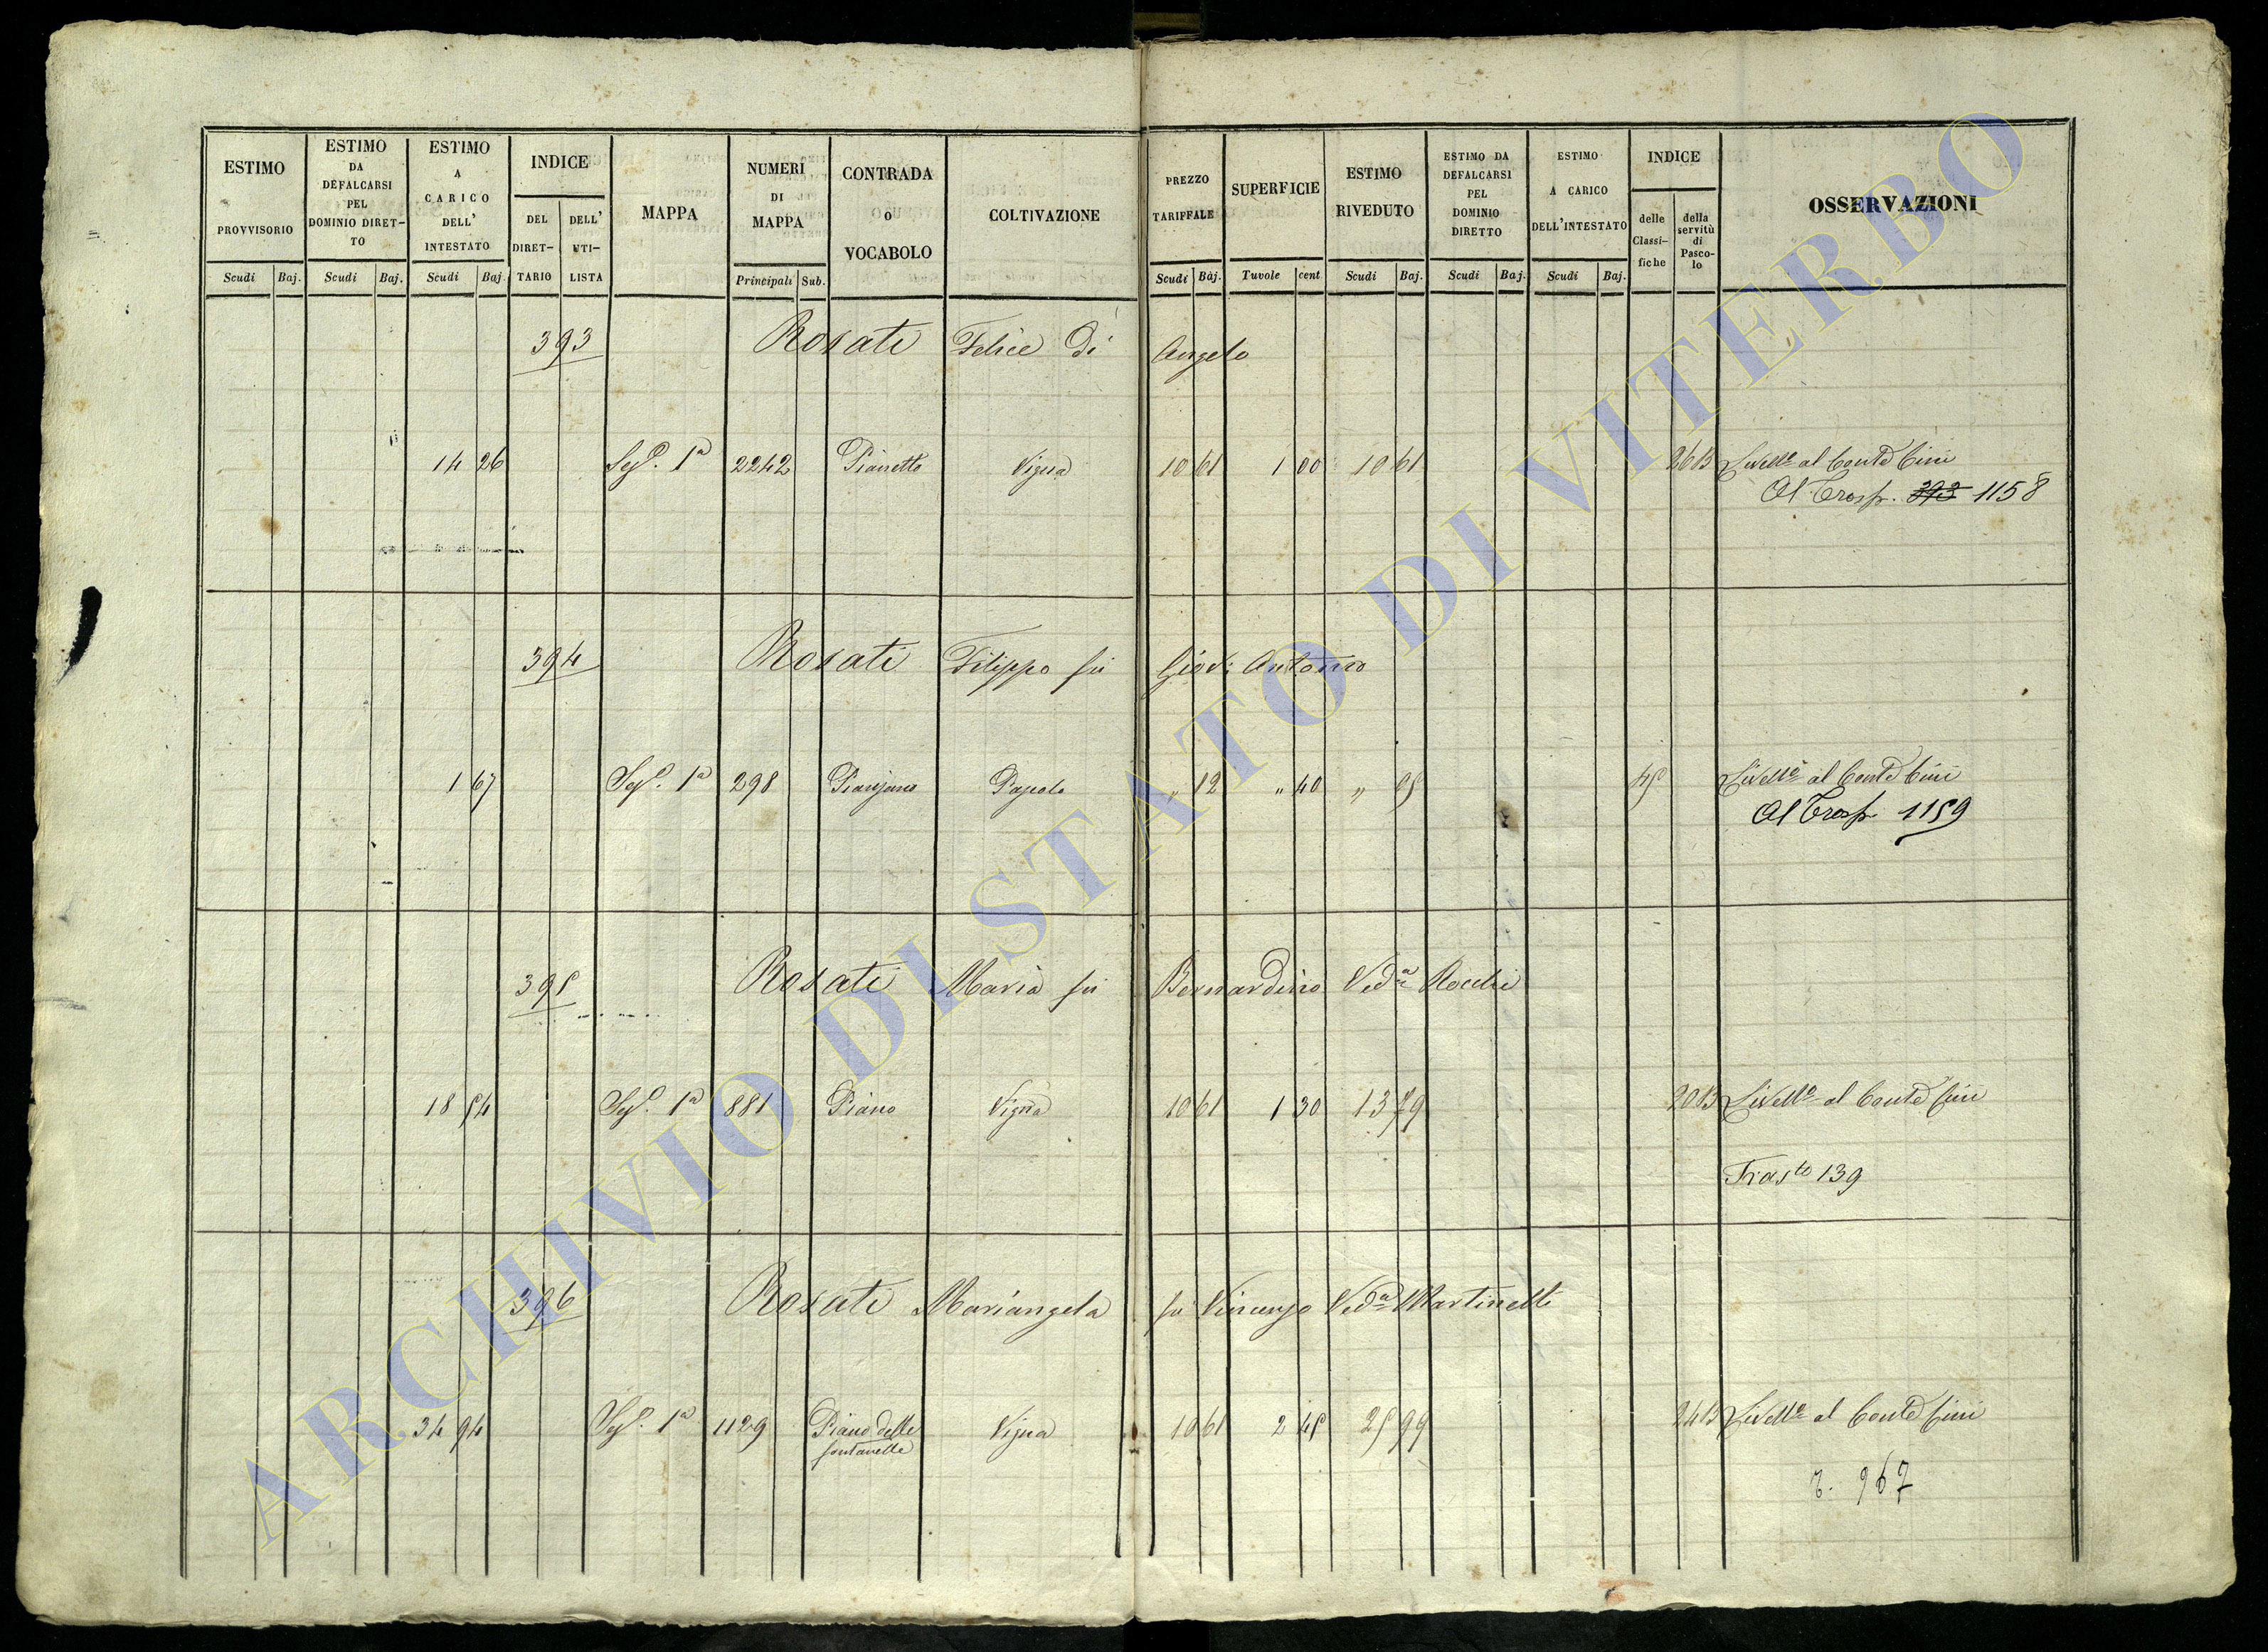 ESTIMO PROVVISORIO Scudi Baj.
ESTIMO DA DEFALCARSI PEL DOMINIO DIRET- TO Scudi Baj.
ESTIMO A CARICO DELL' INTESTATO Scudi Baj.
INDICE DEL DIRET- TARIO DELL' UTI- LISTA
MAPPA
NUMERI DI MAPPA Principali Sub.
CONTRADA O VOCABOLO
COLTIVAZIONE
PREZZO TARIFFALE Scudi Baj.
SUPERFICIE Tavole cent
ESTIMO RIVEDUTO Scudi Baj.
ESTIMO DA DEFALCARSI PEL DOMINIO DIRETTO Scudi Baj.
ESTIMO A CARICO DELL'INTESTATO Scudi Baj.
INDICE delle Classi- fiche della servitù di Pasco- lo
OSSERVAZIONI
393 Rosati Felice di Angelo
14 26 Sez. 1a 2242 Pianetto Vigna 10 61 1 00 10 61 Livello al Conte Cini
Al Trasp. 393 1158
394 Rosati Filippo fu Giov: Antonio
1 67 Sez. 1a 298 Pascolo " 12 " 40 " 05 45 Livello al Conte Cini
Al Trasp. 1159
395 Rosati Maria fu Bernardino Ved.a Rocchi
18 54 Sez. 1a 881 Piano Vigna 10 61 1 30 13 79 Livello al Conte Cini
Tras.to 139
396 Rosati Mariangela fu Vincenzo Ved.a Martinelli
34 94 Sez. 1a 1129 Piano delle fontanelle Vigna 10 61 2 45 25 99 Livello al Conte Cini
967
ARCHIVIO DI STATO DI VITERBO